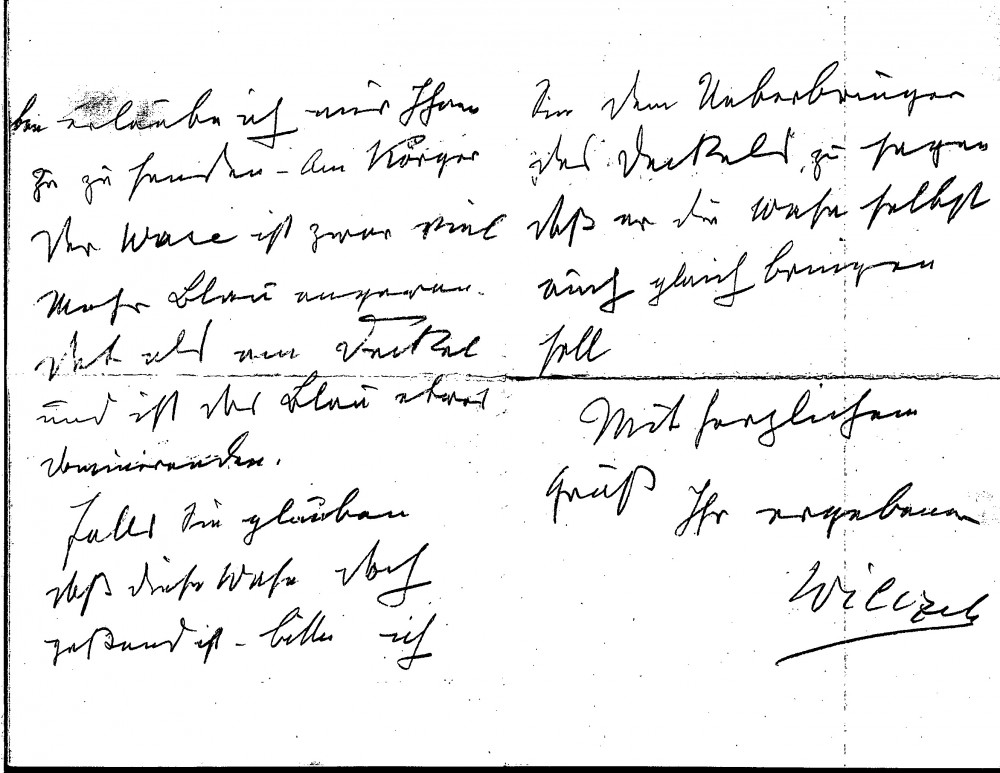 ben erlaube ich mir Ihnen
zu senden – Am Körper
der Wase ist zwar viel
mehr Blau angewen-
det als am Deckel
und ist das Blau etwas
dominirender.
Falls Sie glauben
daß diese Wase doch
ist – bitte ich
Sie dem Ueberbringer
des Deckels zu sagen
daß er die Wase selbst
auch gleich bringen
soll
Mit herzlichem
Gruß Ihr ergebener
Wilczek